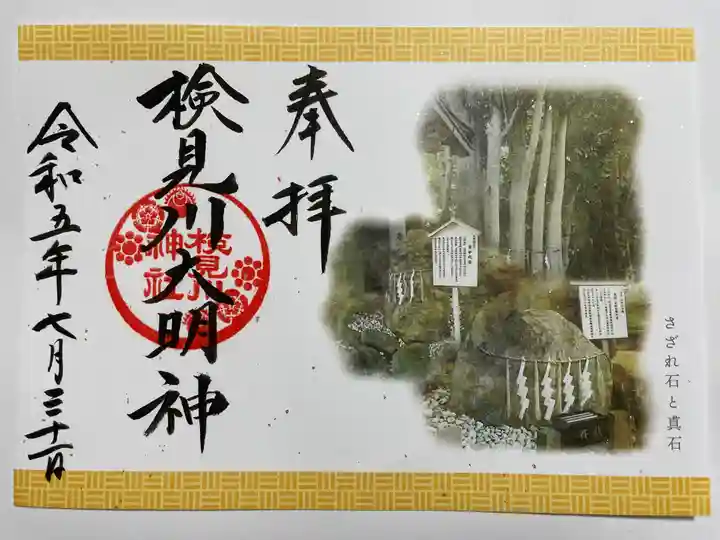 奉拝
検見川大明神
検見川
神社
令和五年七月三十一日
さざれ石と真石